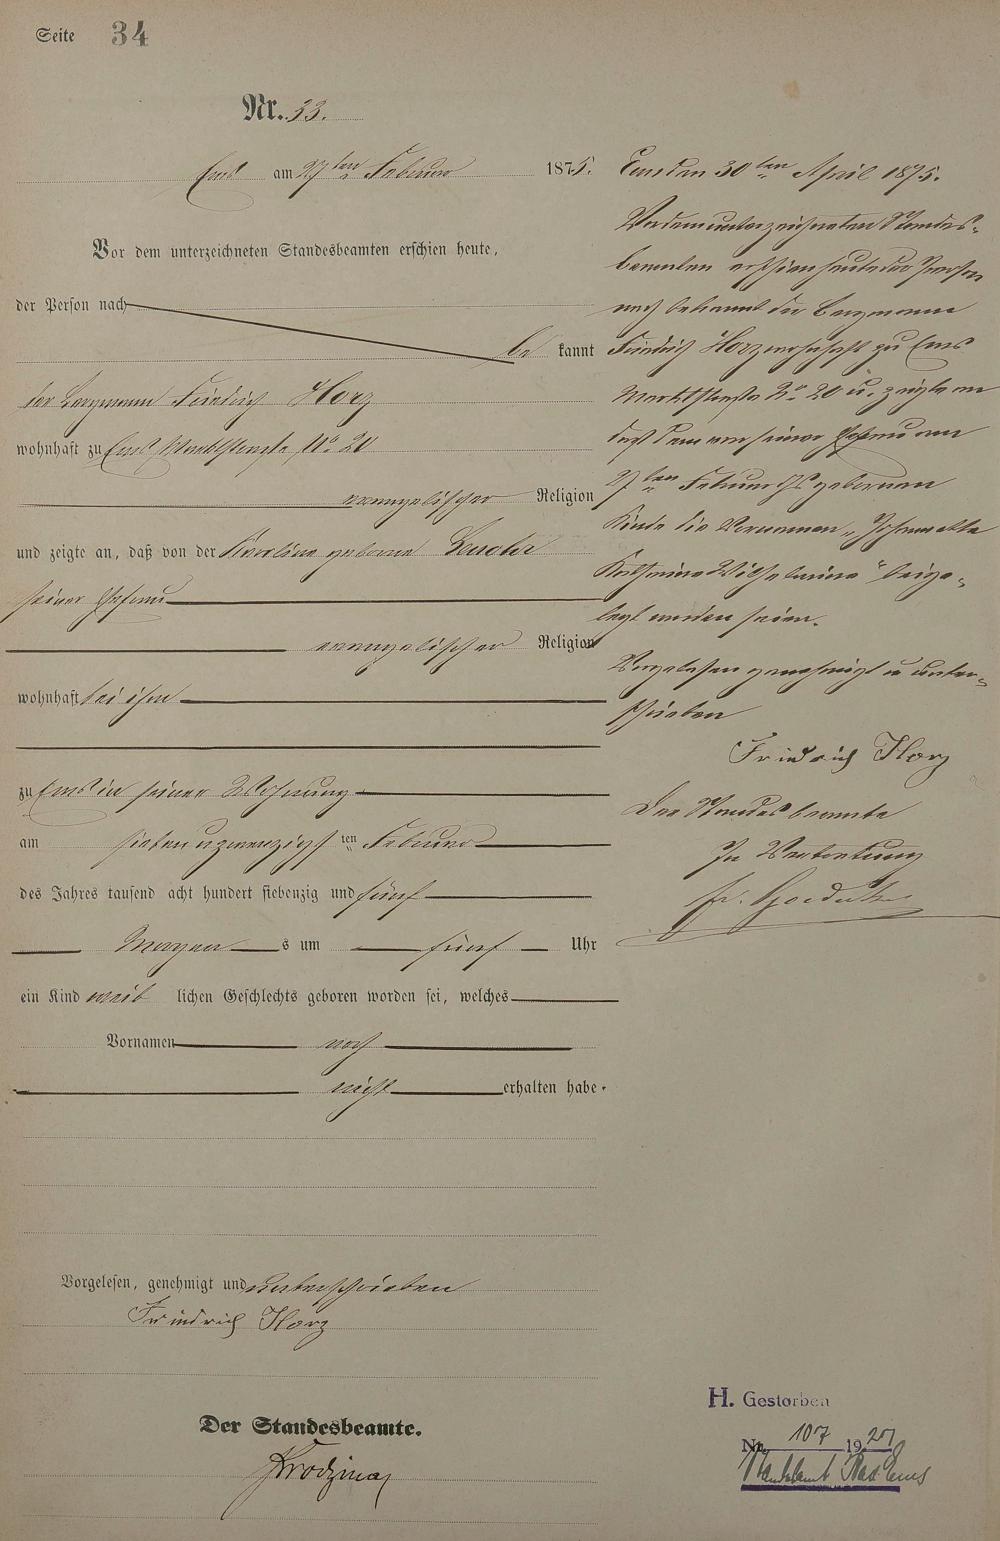 Seite 34
Nr. 33.
Ems am 27ten Februar 1875.
Vor dem unterzeichneten Standesbeamten erschien heute,
der Person nach
be kannt
der Bergmann Friedrich Horz
wohnhaft zu Ems, Marktstraße No 20
evangelischer Religion
und zeigte an, daß von der Karoline geborne
seiner Ehefrau
evangelischer Religion
wohnhaft bei ihm
zu Ems in seiner Wohnung
am siebenundzwanzigsten Februar
des Jahres tausend acht hundert siebenzig und fünf
Morgens um fünf Uhr
ein Kind weiblichen Geschlechts geboren worden sei, welches
Vornamen noch
nicht erhalten habe.
Vorgelesen, genehmigt und unterschrieben
Friedrich Horz
Der Standesbeamte.
Ems den 30ten April 1875.
Vor dem unterzeichneten Standes-
beamten erschien heute der Person
nach bekannt der Bergmann
Friedrich Horz wohnhaft zu Ems
Marktstraße No 20 u. zeigte an
daß dem von seiner Ehefrau am
27ten Februar geborenen
Kinde die Vornamen
Wilhelmine" beige-
legt worden seien.
Vorgelesen genehmigt u unter-
schrieben
Friedrich Horz
Der Standesbeamte
In Vertretung
H. Gestorben
Nr. 107 19
Standesamt Bad Ems